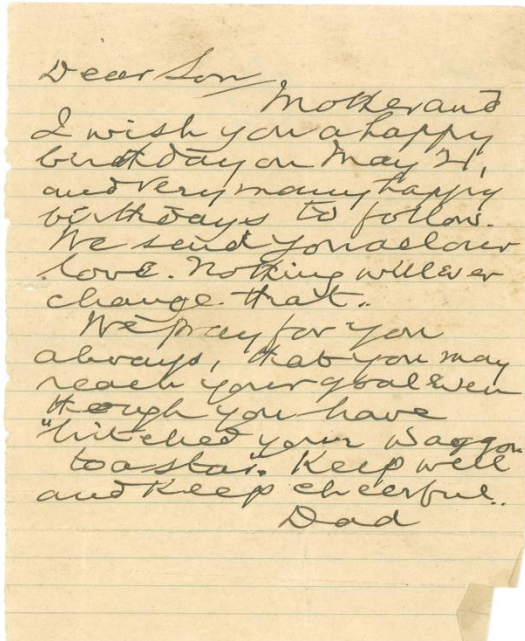 Dear Son
Mother and
I wish you a happy
birthday on May 21,
and very many happy
birthdays to follow.
We send you all our
love. Nothing will ever
change that..
We pray for you
always, that you may
reach your goal even
though you have
"hitched your waggon
to a star". Keep well
and keep cheerful..
Dad